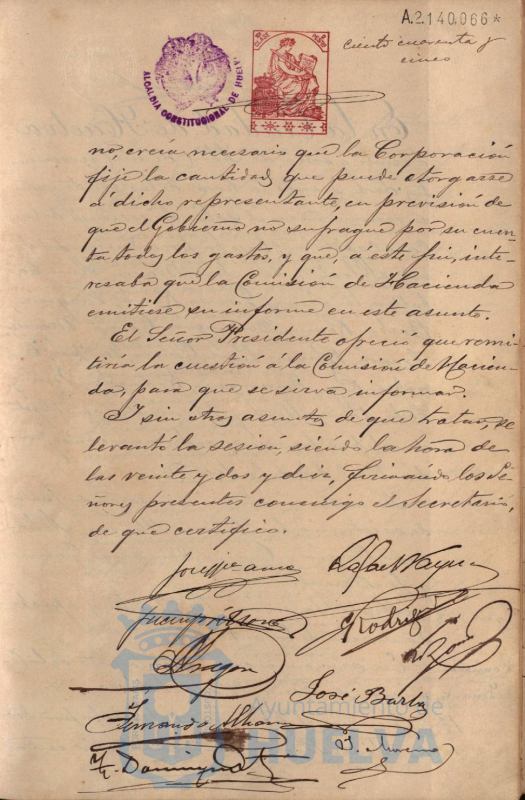 A.2.140.066*
ciento cuarenta y
cinco
ALCALDIA CONSTITUCIONAL DE HUELVA
no, creía necesario que la Corporación
fije la cantidad que puede otorgarse
á dicho representante, en previsión de
que el Gobierno no sufrague por su cuen-
ta todos los gastos, y que, á este fin, inte-
resaba que la Comisión de Hacienda
emitiese su informe en este asunto.
El Señor Presidente ofreció que remi-
tiría la cuestión á la Comisión de Hacien-
da, para que se sirva informar.
I sin otros asuntos de que tratar, se
levantó la sesión, siendo la hora de
las veinte y dos y diez, firmando los Se-
ñores presentes conmigo el Secretario,
de que certifico.
Rodrig
Aragon
José
Fernando
J. Moreno
Dominguez
Ayuntamiento de
HUELVA